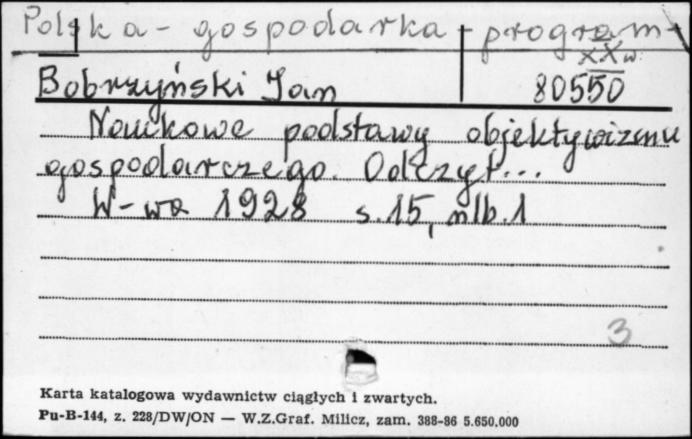 Polska - gospodarka - program -
XX w.
Bobrzyński Jan 80550
Naukowe podstawy objektywizmu
gospodarczego. Odczyt...
W-wa 1928 s.15, nlb.1
3
Karta katalogowa wydawnictw ciągłych i zwartych.
Pu-B-144, z. 228/DW/ON — W.Z.Graf. Milicz, zam. 388-86 5.650.000